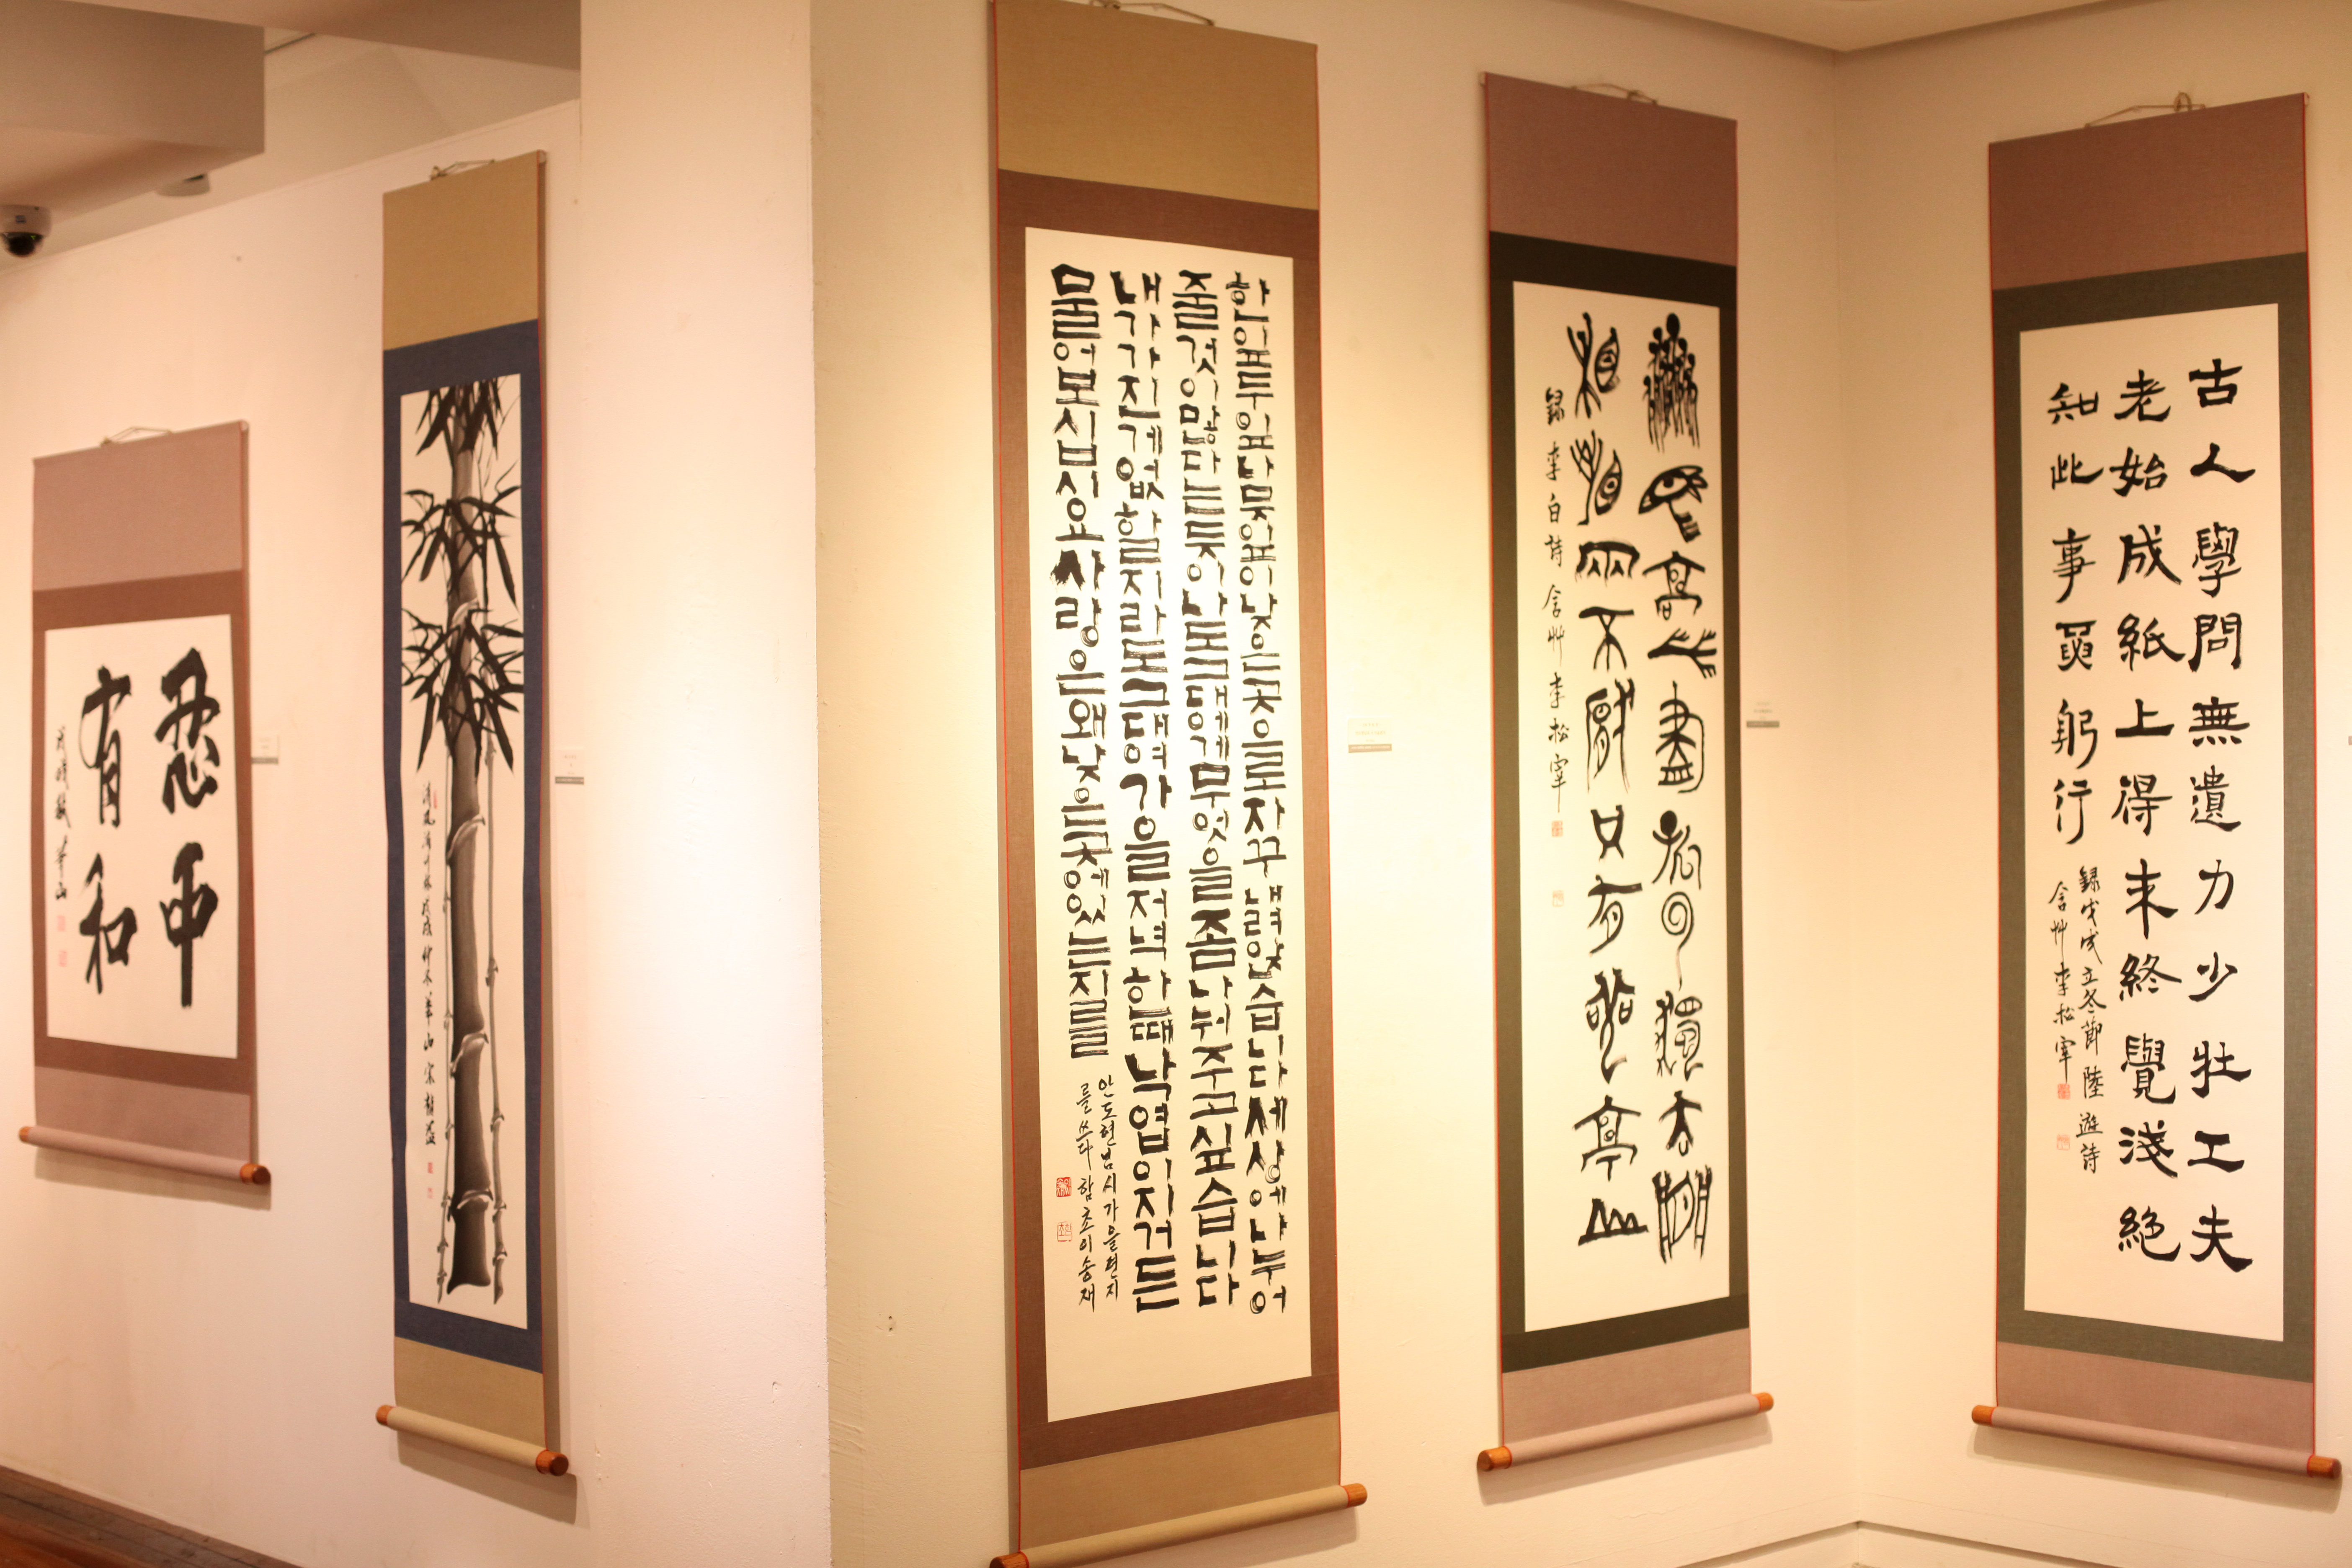 忍中
有和
한잎두잎나뭇잎이낮은곳으로자꾸내려앉습니다세상에나누어
줄것이많다는듯이나도그대에게무엇을좀나눠주고싶습니다
내가가진게없할지라도그대여가을저녁한때낙엽이지거든
물어보십시오사랑은왜낮은곳에있는지를
안도현님시가을편지
를쓰다함초이송재
衆鳥高飛盡孤雲獨去閒
相看兩不厭只有敬亭山
録李白詩含艸李松宰
古人學問無遺力少壯工夫
老始成紙上得来終覺淺絶
知此事要躬行
録戊戌立冬節陸遊詩
含艸李松宰